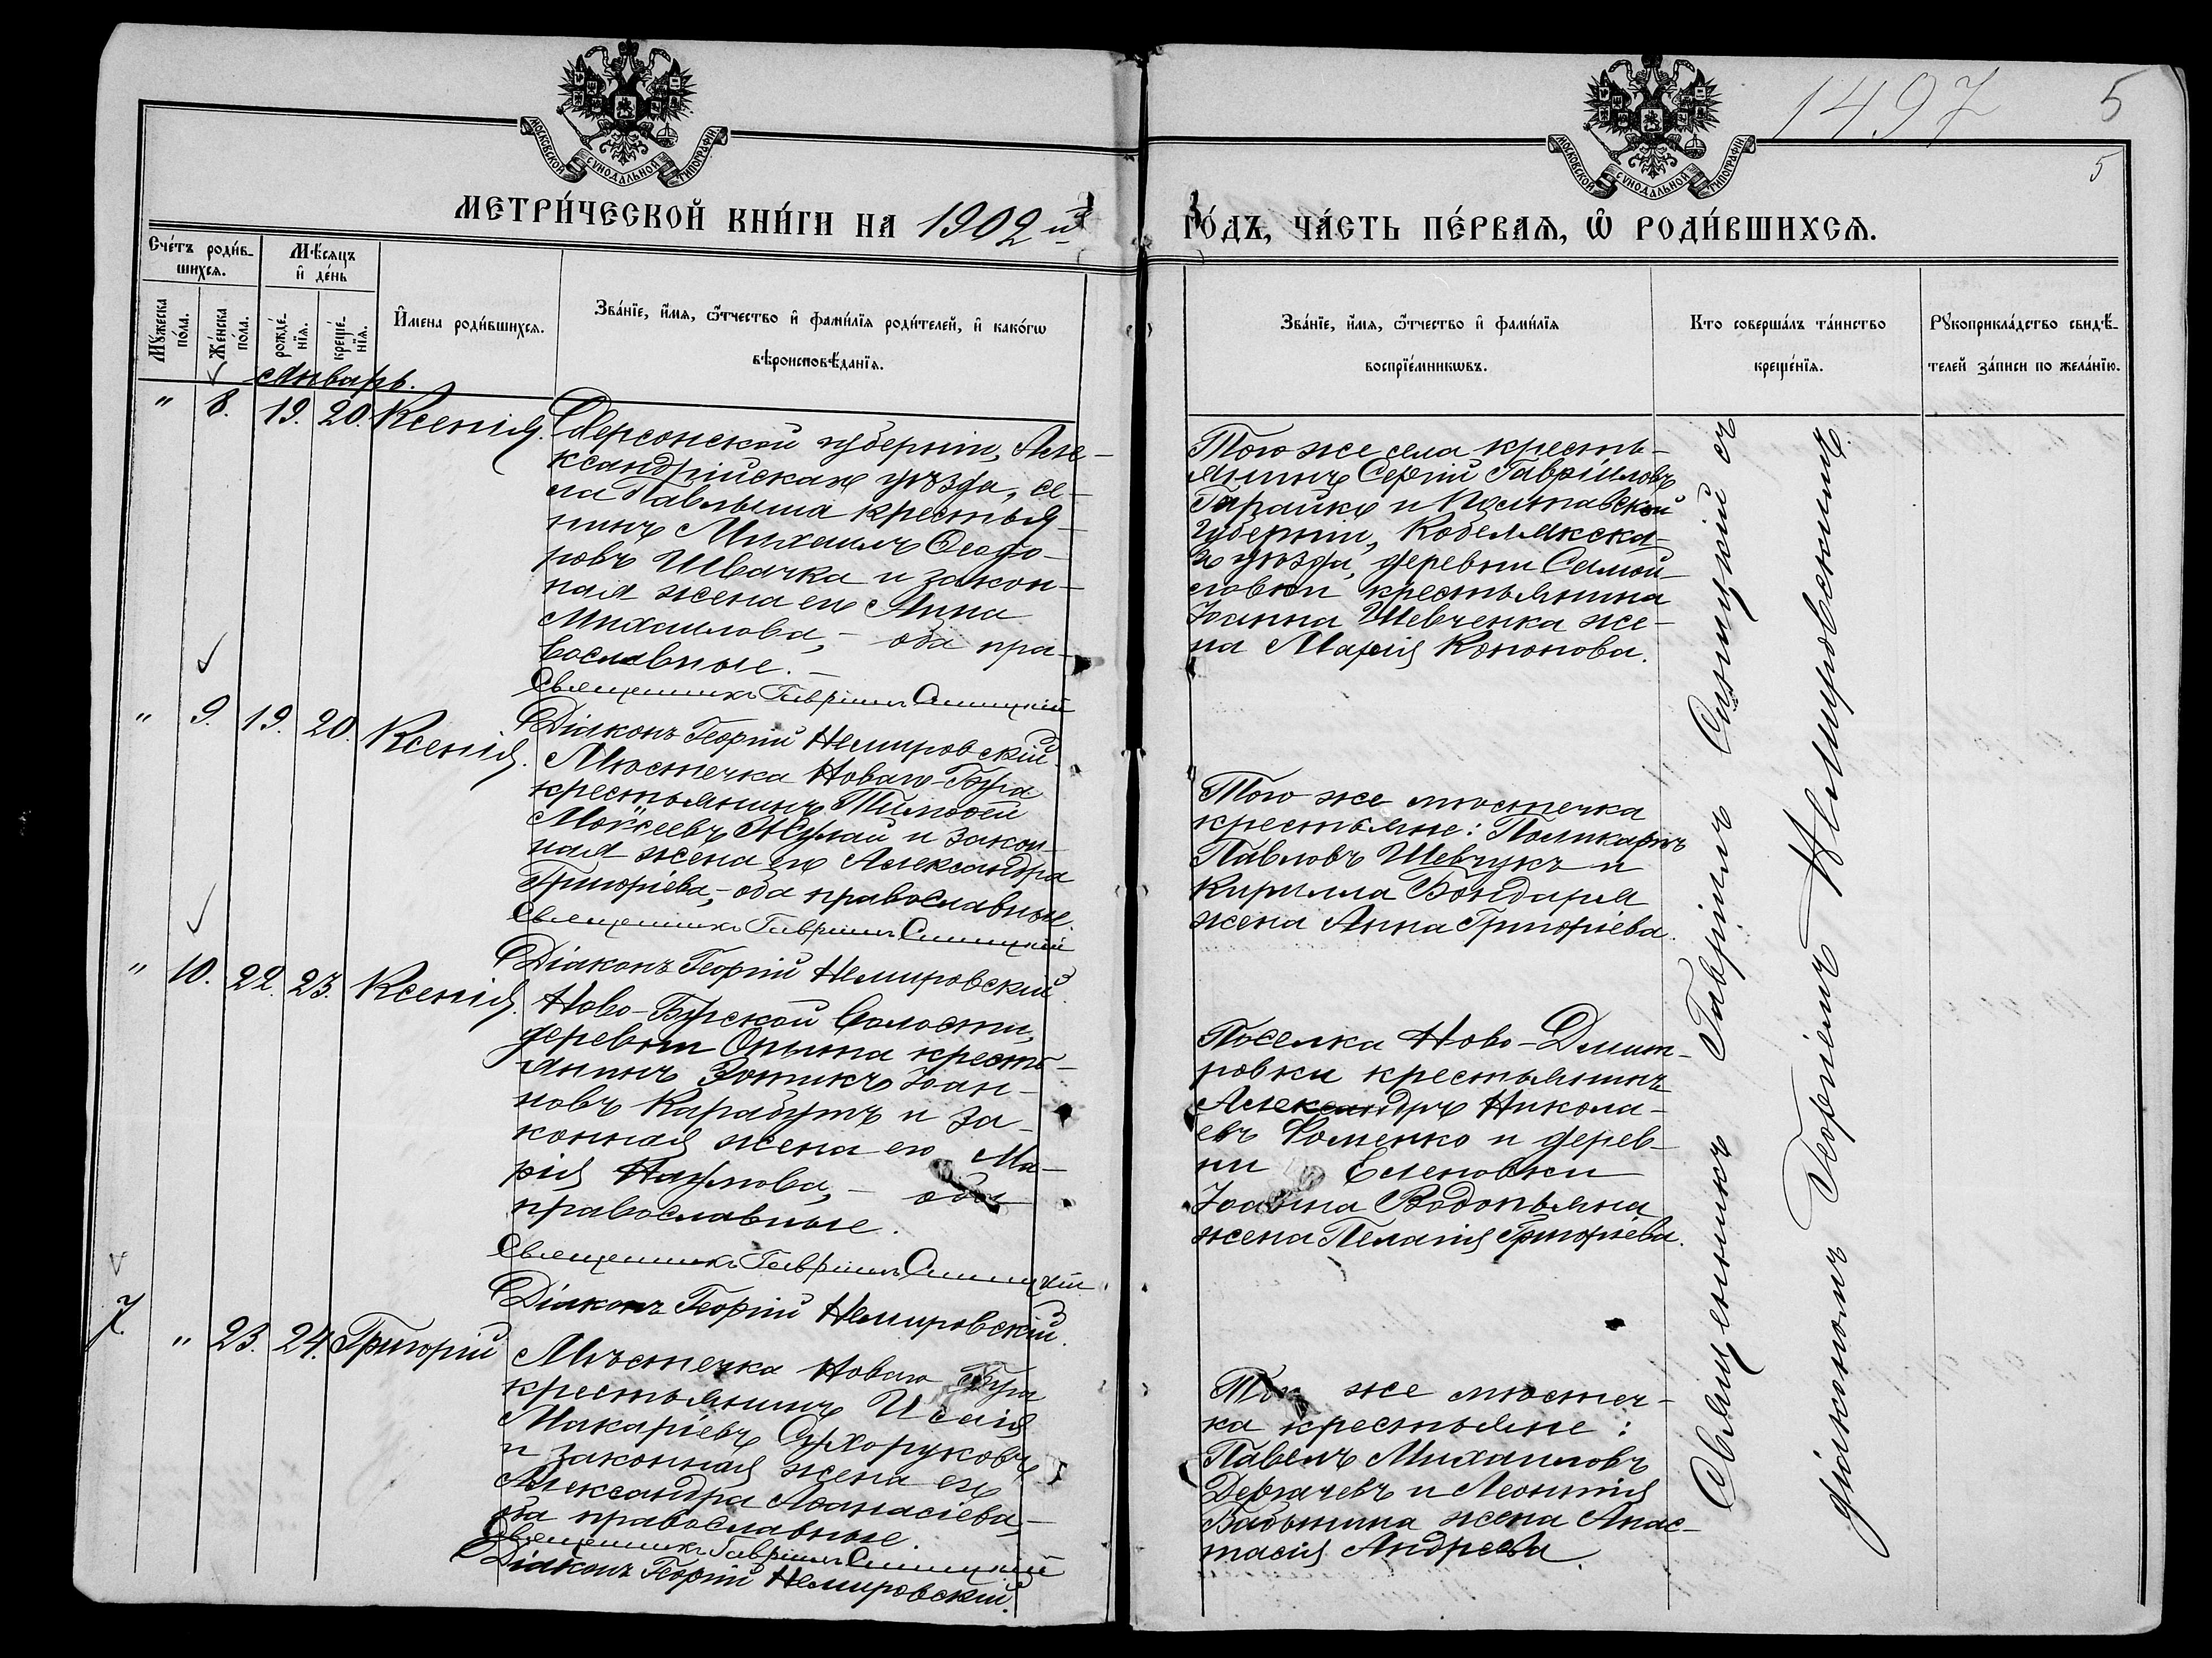 1497
5
5
МОСКОВСКОЙ СУНОДАЛЬНОЙ ТИПОГРАФІИ
МОСКОВСКОЙ СУНОДАЛЬНОЙ ТИПОГРАФІИ
МЕТРИ́ЧЕСКОЙ КНИ́ГИ НА 1902 й
ГО́ДЪ, ЧА́СТЬ ПЕ́РВАѦ, Ѡ҆ РОДИ́ВШИХСѦ.
Сче́тъ роди́в-
шихсѧ.
Мѣ́сѧцъ
и҆ де́нь
Мꙋ́жеска
по́ла.
Же́нска
по́ла.
рожде́-
нїѧ.
креще́-
нїѧ.
И҆мена роди́вшихсѧ.
Зва́нїе, и҆́мѧ, ѻ҆́тчество и҆ фами́лїѧ роди́телей, и҆ како́гѡ
вѣроисповѣ́данїѧ.
Зва́нїе, и҆́мѧ, ѻ҆́тчество и҆ фами́лїѧ
воспрїе́мникѡвъ.
Кто соверша́лъ та́инство
креще́нїѧ.
Рꙋкоприкла́дство свидѣ́-
телей за́писи по жела́нїю.
Январь.
" 8. 19. 20. Ксенія.
Херсонской губерніи, Але-
ксандрійскаго уѣзда, се-
ла Павлыша крестья-
нинъ Михаилъ Ѳеодо-
ровъ Швачка и закон-
ная жена его Анна
Михаилова, - оба пра-
вославные. -
Священникъ Гавріилъ Синицкій
Діаконъ Георгій Немировскій.
Того же села кресть-
янинъ Сергій Гавріиловъ
и Полтавской
губерніи, Кобелякска-
го уѣзда, деревни Самой-
ловки крестьянина
Іоанна Шевченка же-
на Марія Кононова.
" 9. 19. 20. Ксенія.
Мѣстечка Новаго-Буга
крестьянинъ Тимоѳей
Моѵсеевъ Жулай и закон-
ная жена его Александра
Григоріева, - оба православные.
Священникъ Гавріилъ Синицкій
Діаконъ Георгій Немировскій.
Того же мѣстечка
крестьяне: Поликарпъ
Павловъ Шевчукъ и
Кирилла Бондаря
жена Анна Григоріева.
" 10. 22. 23. Ксенія.
Ново-Бугской волости,
деревни кресть-
янинъ Зотикъ Іоан-
новъ Карабутъ и за-
конная жена его Ма-
рія Наумова, - оба
православные.
Священникъ Гавріилъ Синицкій
Діаконъ Георгій Немировскій.
Поселка Ново-Дмит-
ровки крестьянинъ
Александръ Никола-
евъ Фоменко и дерев-
ни Еленовки
Іоанна Водопьяна
жена Пелагія Григоріева.
7. " 23. 24. Григорій
Мѣстечка Новаго Буга
крестьянинъ Исаія
Макаріевъ Сухоруковъ
и законная жена его
Александра Аѳанасіева, -
оба православные.
Священникъ Гавріилъ Синицкій
Діаконъ Георгій Немировскій.
Того же мѣстеч-
ка крестьяне:
Павелъ Михаиловъ
Дергачевъ и Леонтія
жена Анас-
тасія Андреева.
Священникъ Гавріилъ Синицкій съ
діакономъ Георгіемъ Немировскимъ.